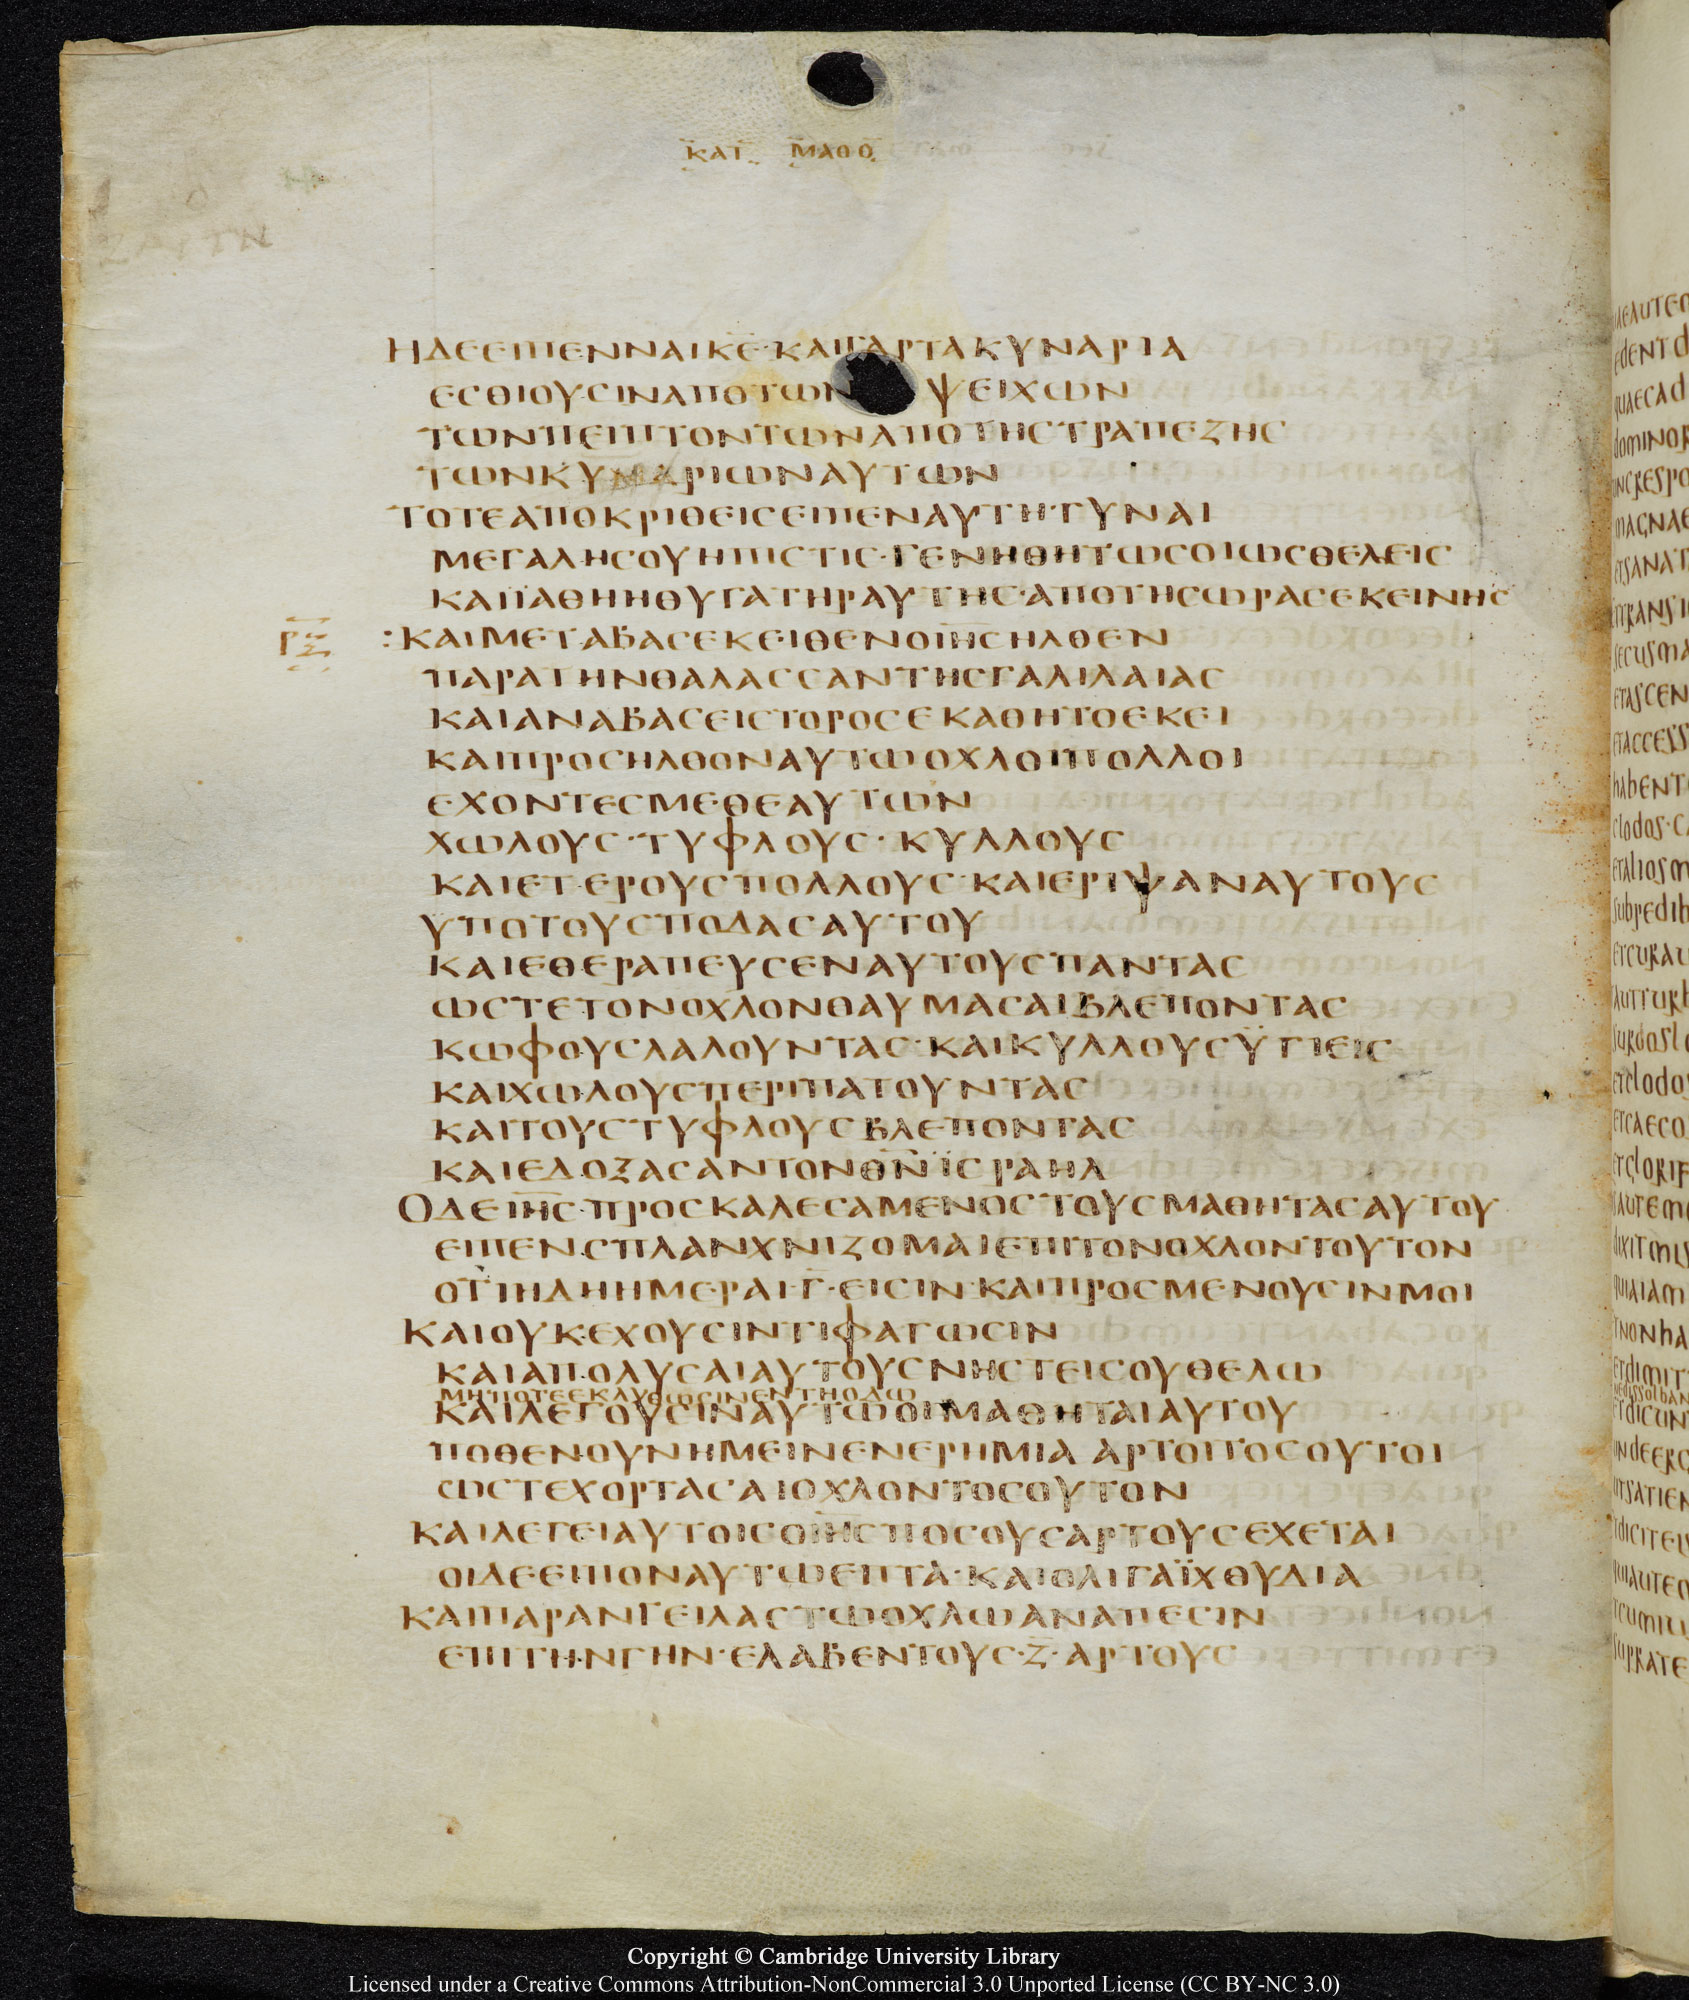 ΚΑΤ ΜΑΘΘ
ΗΔΕΕΙΠΕΝΝΑΙΚΕ·ΚΑΙΓΑΡΤΑΚΥΝΑΡΙΑ
ΕΣΘΙΟΥΣΙΝΑΠΟΤΩΝ ΨΕΙΧΩΝ
ΤΩΝΠΕΙΠΤΟΝΤΩΝΑΠΟΤΗΣΤΡΑΠΕΖΗΣ
ΤΩΝΚΥΝΑΡΙΩΝΑΥΤΩΝ
ΤΟΤΕΑΠΟΚΡΙΘΕΙΣΕΙΠΕΝΑΥΤΗ·ΓΥΝΑΙ
ΜΕΓΑΛΗΣΟΥΗΠΙΣΤΙΣ·ΓΕΝΗΘΗΤΩΣΟΙΩΣΘΕΛΕΙΣ
ΚΑΙΪΑΘΗΗΘΥΓΑΤΗΡΑΥΤΗΣ·ΑΠΟΤΗΣΩΡΑΣΕΚΕΙΝΗΣ
ΡΞ :ΚΑΙΜΕΤΑΒΑΣΕΚΕΙΘΕΝΟΙΗΣΗΛΘΕΝ
ΠΑΡΑΤΗΝΘΑΛΑΣΣΑΝΤΗΣΓΑΛΙΛΑΙΑΣ
ΚΑΙΑΝΑΒΑΣΕΙΣΤΟΡΟΣΕΚΑΘΗΤΟΕΚΕΙ
ΚΑΙΠΡΟΣΗΛΘΟΝΑΥΤΩΟΧΛΟΙΠΟΛΛΟΙ
ΕΧΟΝΤΕΣΜΕΘΕΑΥΤΩΝ
ΧΩΛΟΥΣ·ΤΥΦΛΟΥΣ·ΚΥΛΛΟΥΣ
ΚΑΙΕΤΕΡΟΥΣΠΟΛΛΟΥΣ·ΚΑΙΕΡΙΨΑΝΑΥΤΟΥΣ
ΥΠΟΤΟΥΣΠΟΔΑΣΑΥΤΟΥ
ΚΑΙΕΘΕΡΑΠΕΥΣΕΝΑΥΤΟΥΣΠΑΝΤΑΣ
ΩΣΤΕΤΟΝΟΧΛΟΝΘΑΥΜΑΣΑΙΒΛΕΠΟΝΤΑΣ
ΚΩΦΟΥΣΛΑΛΟΥΝΤΑΣ·ΚΑΙΚΥΛΛΟΥΣΫΓΙΕΙΣ
ΚΑΙΧΩΛΟΥΣΠΕΡΙΠΑΤΟΥΝΤΑΣ
ΚΑΙΤΟΥΣΤΥΦΛΟΥΣΒΛΕΠΟΝΤΑΣ
ΚΑΙΕΔΟΞΑΣΑΝΤΟΝΘΝΪΣΡΑΗΛ
ΟΔΕΙΗΣ·ΠΡΟΣΚΑΛΕΣΑΜΕΝΟΣΤΟΥΣΜΑΘΗΤΑΣΑΥΤΟΥ
ΕΙΠΕΝ·ΣΠΛΑΝΧΝΙΖΟΜΑΙΕΠΙΤΟΝΟΧΛΟΝΤΟΥΤΟΝ
ΟΤΙΗΔΗΗΜΕΡΑΙ·Γ·ΕΙΣΙΝ·ΚΑΙΠΡΟΣΜΕΝΟΥΣΙΝΜΟΙ
ΚΑΙΟΥΚΕΧΟΥΣΙΝΤΙΦΑΓΩΣΙΝ
ΚΑΙΑΠΟΛΥΣΑΙΑΥΤΟΥΣΝΗΣΤΕΙΣΟΥΘΕΛΩ
ΜΗΠΟΤΕΕΚΛΥΘΩΣΙΝΕΝΤΗΟΔΩ
ΚΑΙΛΕΓΟΥΣΙΝΑΥΤΩΟΙΜΑΘΗΤΑΙΑΥΤΟΥ
ΠΟΘΕΝΟΥΝΗΜΕΙΝΕΝΕΡΗΜΙΑ ΑΡΤΟΙΤΟΣΟΥΤΟΙ
ΩΣΤΕΧΟΡΤΑΣΑΙΟΧΛΟΝΤΟΣΟΥΤΟΝ
ΚΑΙΛΕΓΕΙΑΥΤΟΙΣΟΙΗΣΠΟΣΟΥΣΑΡΤΟΥΣΕΧΕΤΑΙ
ΟΙΔΕΕΙΠΟΝΑΥΤΩΕΠΤΑ·ΚΑΙΟΛΙΓΑΪΧΘΥΔΙΑ
ΚΑΙΠΑΡΑΝΓΕΙΛΑΣΤΩΟΧΛΩΑΝΑΠΕΣΙΝ
ΕΠΙΤΗΝΓΗΝ·ΕΛΑΒΕΝΤΟΥΣ·Ζ·ΑΡΤΟΥΣ
Copyright © Cambridge University Library
Licensed under a Creative Commons Attribution-NonCommercial 3.0 Unported License (CC BY-NC 3.0)